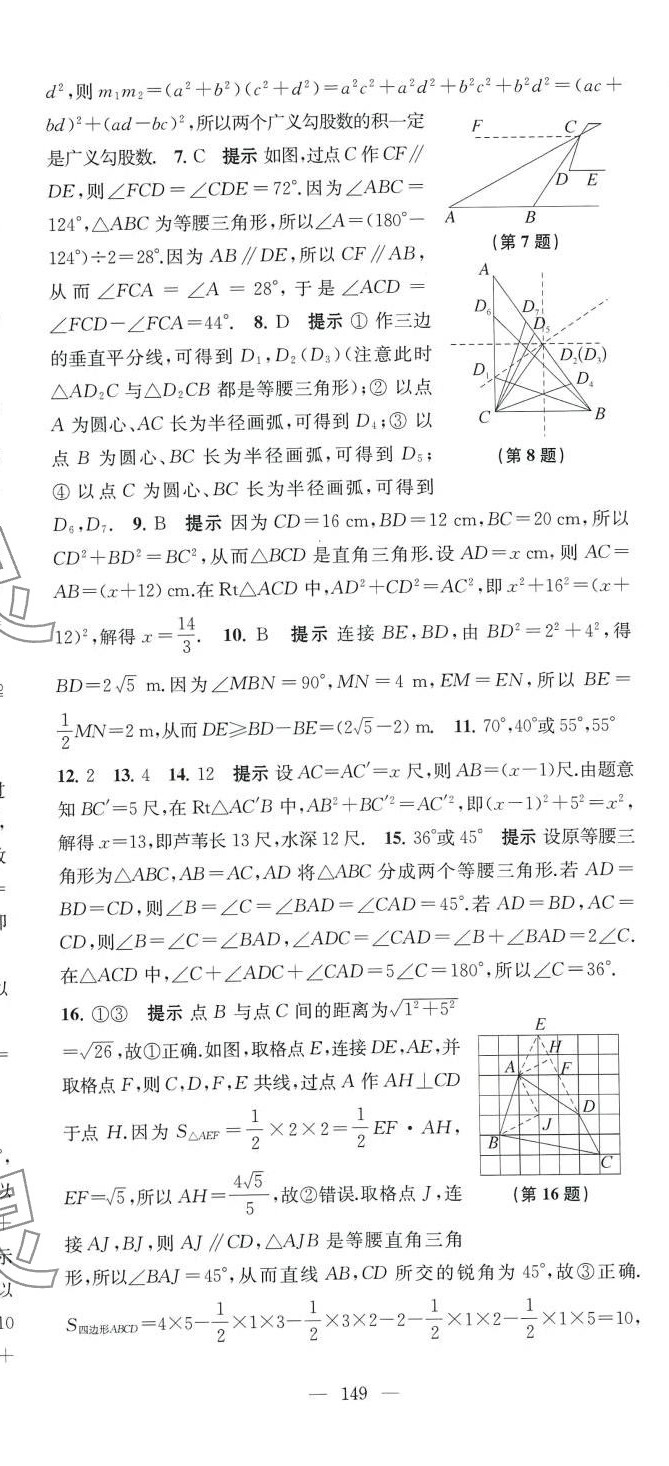 d²,则 m₁m₂=(a²+b²)(c²+d²)=a²c²+a²d²+b²c²+b²d²=(ac+
bd)²+(ad−bc)²,所以两个广义勾股数的积一定
是广义勾股数. 7. C 提示 如图,过点 C 作 CF∥
DE,则∠FCD=∠CDE=72°.因为∠ABC=
124°,△ABC 为等腰三角形,所以∠A=(180°−
124°)÷2=28°.因为 AB∥DE,所以 CF∥AB,
从而∠FCA=∠A=28°,于是∠ACD=
∠FCD−∠FCA=44°. 8. D 提示 ① 作三边
的垂直平分线,可得到 D₁,D₂(D₃)(注意此时
△AD₂C 与△D₂CB 都是等腰三角形);② 以点
A 为圆心、AC 长为半径画弧,可得到 D₄;③ 以
点 B 为圆心、BC 长为半径画弧,可得到 D₅;
④ 以点 C 为圆心、BC 长为半径画弧,可得到
F C
D E
A B
(第 7 题)
A
D₆ D₇
D₅
D₂(D₃)
D₁ D₄
C B
(第 8 题)
D₆,D₇. 9. B 提示 因为 CD=16 cm,BD=12 cm,BC=20 cm,所以
CD²+BD²=BC²,从而△BCD 是直角三角形.设 AD=x cm,则 AC=
AB=(x+12) cm.在 Rt△ACD 中,AD²+CD²=AC²,即 x²+16²=(x+
12)²,解得 x=14/3. 10. B 提示 连接 BE,BD,由 BD²=2²+4²,得
BD=2√5 m.因为∠MBN=90°,MN=4 m,EM=EN,所以 BE=
1/2MN=2 m,从而 DE≥BD−BE=(2√5−2) m. 11. 70°,40°或 55°,55°
12. 2 13. 4 14. 12 提示 设 AC=AC′=x 尺,则 AB=(x−1)尺.由题意
知 BC′=5 尺,在 Rt△AC′B 中,AB²+BC′²=AC′²,即(x−1)²+5²=x²,
解得 x=13,即芦苇长 13 尺,水深 12 尺. 15. 36°或 45° 提示 设原等腰三
角形为△ABC,AB=AC,AD 将△ABC 分成两个等腰三角形.若 AD=
BD=CD,则∠B=∠C=∠BAD=∠CAD=45°.若 AD=BD,AC=
CD,则∠B=∠C=∠BAD,∠ADC=∠CAD=∠B+∠BAD=2∠C.
在△ACD 中,∠C+∠ADC+∠CAD=5∠C=180°,所以∠C=36°.
16. ①③ 提示 点 B 与点 C 间的距离为√1²+5²
=√26,故①正确.如图,取格点 E,连接 DE,AE,并
取格点 F,则 C,D,F,E 共线,过点 A 作 AH⊥CD
于点 H.因为 S△AEF=1/2×2×2=1/2EF·AH,
EF=√5,所以 AH=4√5/5,故②错误.取格点 J,连
接 AJ,BJ,则 AJ∥CD,△AJB 是等腰直角三角
E
H
A F
D
J
B
C
(第 16 题)
形,所以∠BAJ=45°,从而直线 AB,CD 所交的锐角为 45°,故③正确.
S四边形ABCD=4×5−1/2×1×3−1/2×3×2−2−1/2×1×2−1/2×1×5=10,
— 149 —